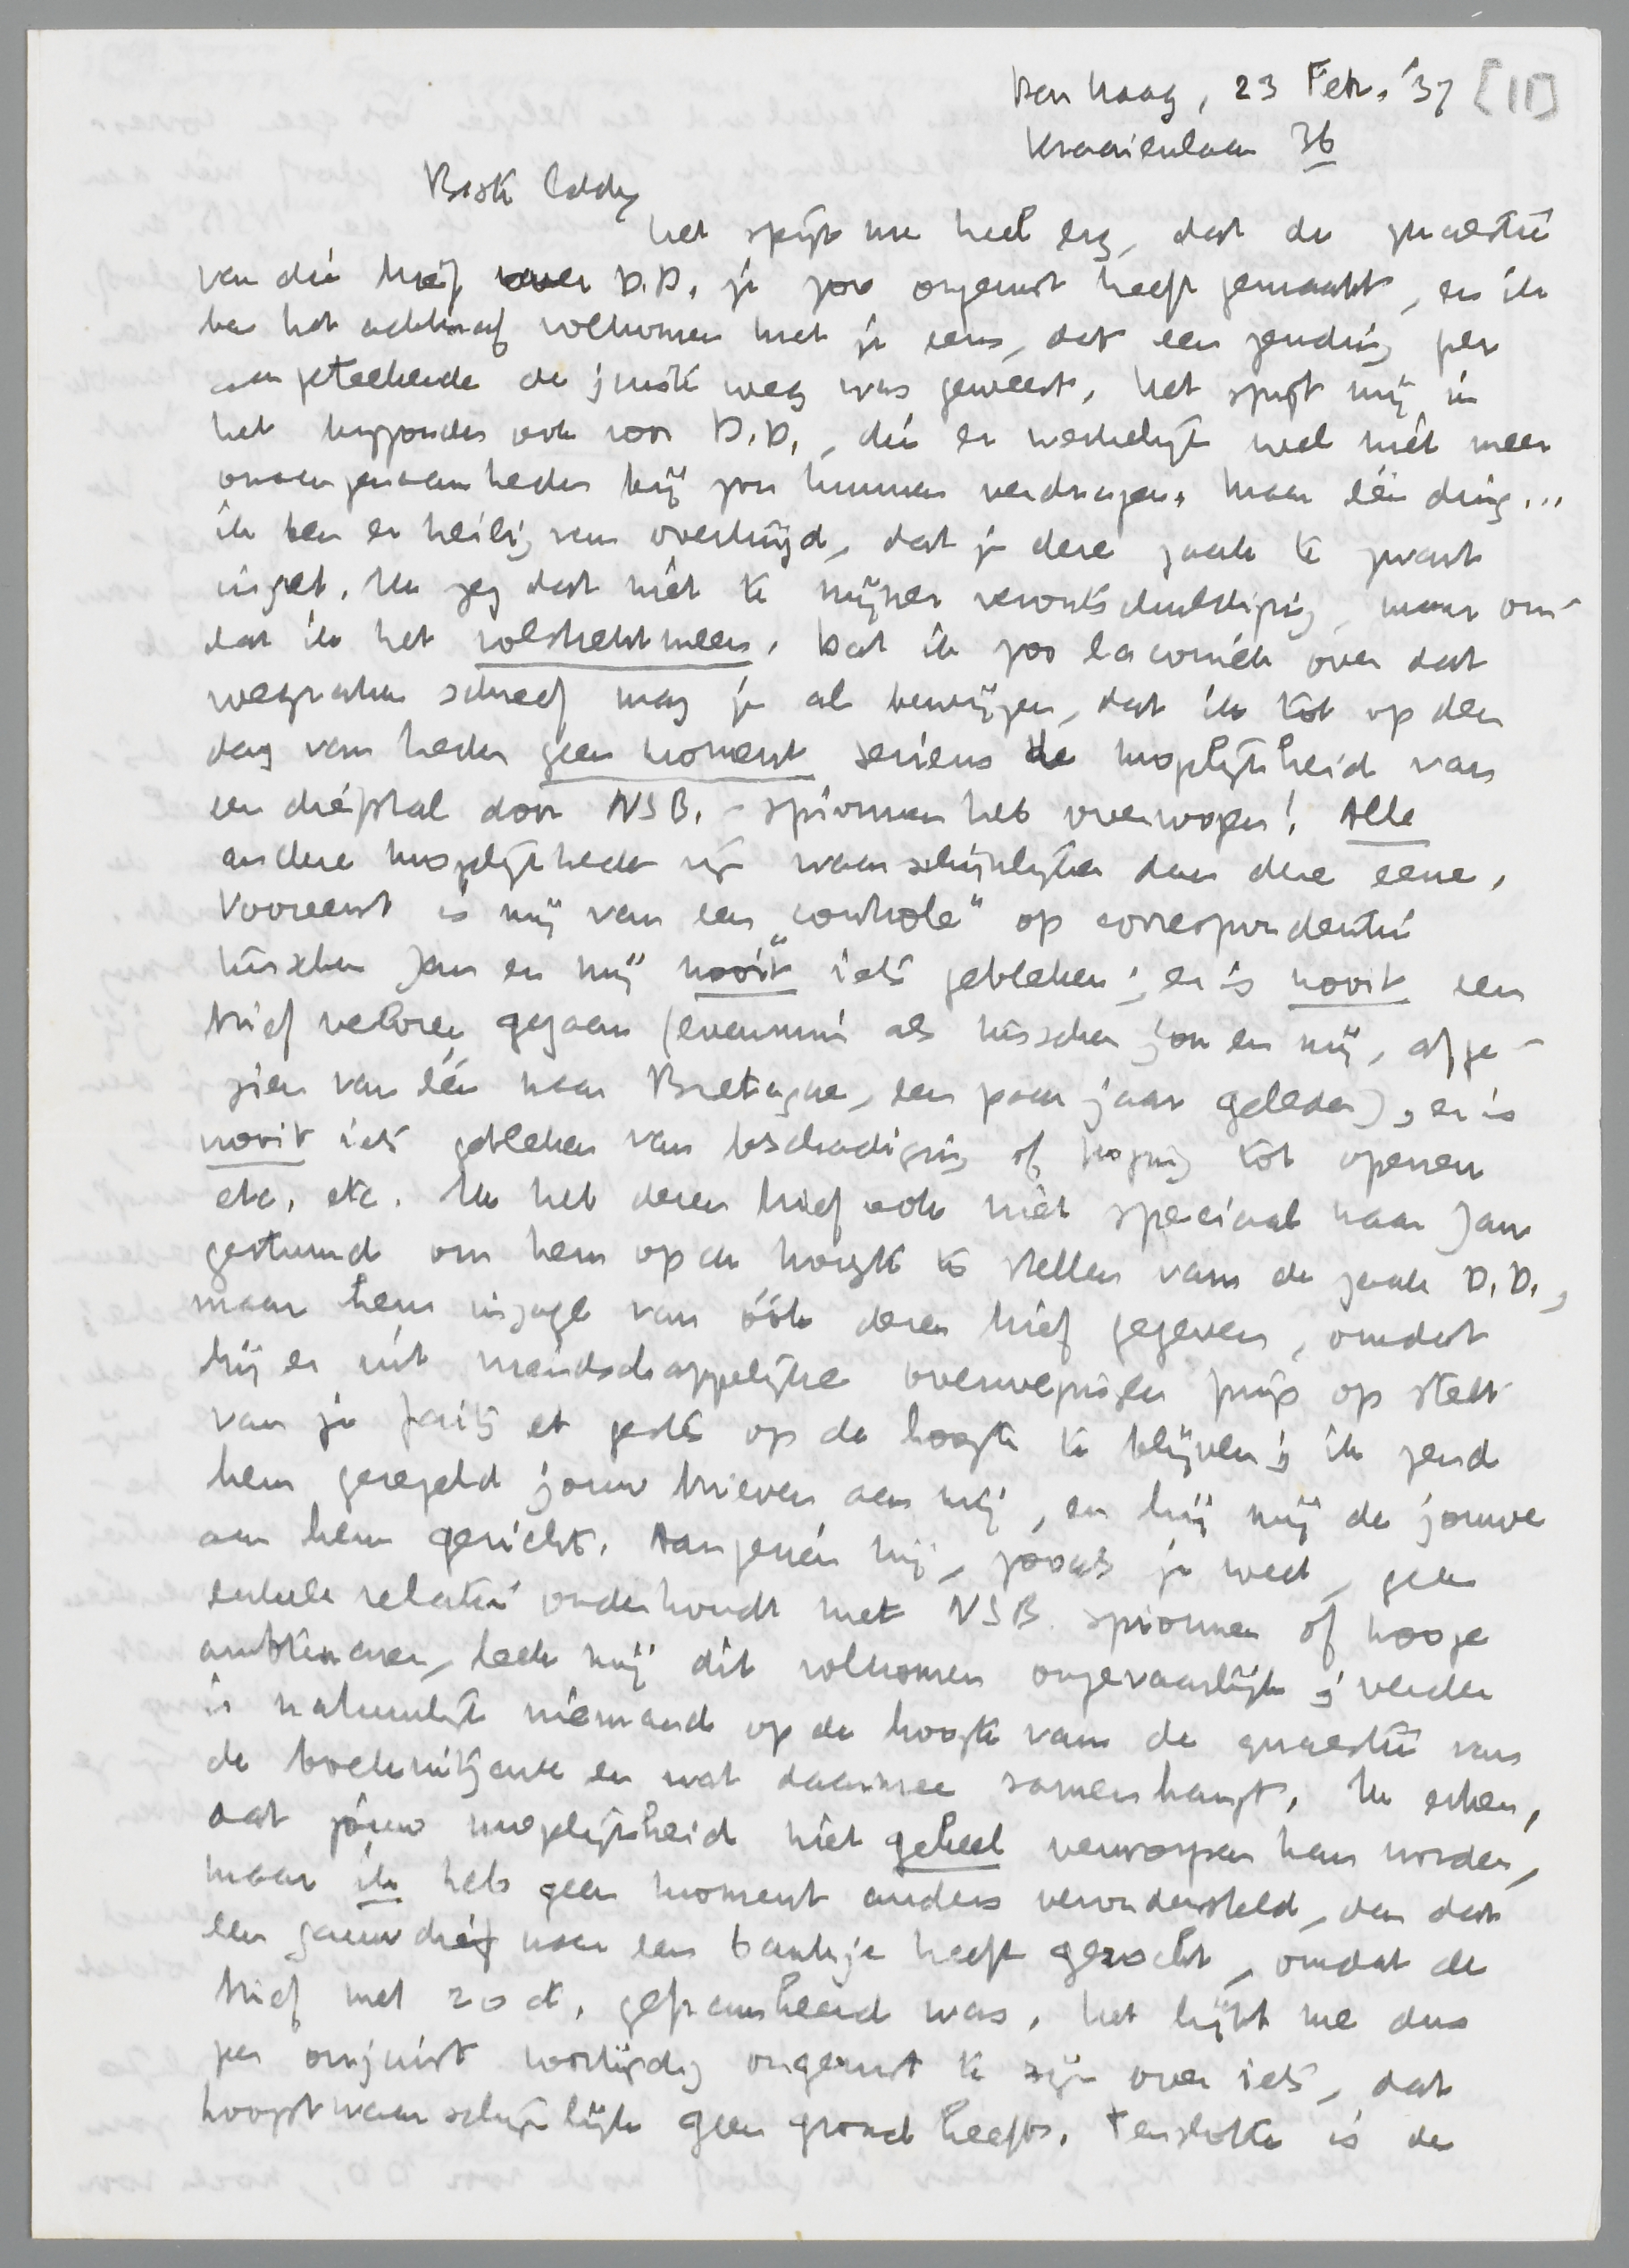 Den Haag, 23 Febr. '37 [11]
Kraaienlaan 36
Beste Eddy
Het spijt me heel erg, dat de quaestie
van die brief over D.D. je zoo ongerust heeft gemaakt, en ik
ben het achteraf volkomen met je eens, dat een zending per
aangeteekende de juiste weg was geweest. Het spijt mij in
het bijzonder ook voor D.D., die er werkelijk wel niet meer
onaangenaamheden bij zou kunnen verdragen. Maar één ding...
ik ben er heilig van overtuigd, dat je deze zaak te zwart
inziet. Ik zeg dat niet te mijner verontschuldiging, maar om-
dat ik het volstrekt meen. Dat ik zoo laconiek over dat
wegraken schreef mag je al bewijzen, dat ik tot op den
dag van heden geen moment serieus de mogelijkheid van
een diefstal door NSB.-spionnen heb overwogen! Alle
andere mogelijkheden zijn waarschijnlijker dan deze eene.
Vooreerst is mij van een „controle" op correspondentie
tusschen Jan en mij nooit iets gebleken; er is nooit een
brief verloren gegaan (evenmin als tusschen jou en mij, afge-
zien van één naar Bretagne, een paar jaar geleden), er is
nooit iets gebleken van beschadiging of poging tot openen
etc. etc. Ik heb dezen brief ook niet speciaal naar Jan
gestuurd om hem op de hoogte te stellen van de zaak D.D.,
maar hem inzage van óók dezen brief gegeven, omdat
hij er uit vriendschappelijke overwegingen prijs op stelt
van je faits et gestes op de hoogte te blijven; ik zend
hem geregeld jouw brieven aan mij, en hij mij de jouwe
aan hem gericht. Aangezien hij, zooals je weet, geen
enkele relatie onderhoudt met NSB. spionnen of hooge
ambtenaren, leek mij dit volkomen ongevaarlijk; verder
is natuurlijk niemand op de hoogte van de quaestie van
de boekuitgave en wat daarmee samenhangt. Ik erken,
dat jóuw mogelijkheid niet geheel verworpen kan worden,
maar ik heb geen moment anders verondersteld, dan dat
een gauwdief naar een bankje heeft gezocht, omdat de
brief met 20 ct. gefrankeerd was. Het lijkt me dus
per onjuist voortijdig ongerust te zijn over iets, dat
hoogstwaarschijnlijk geen grond heeft. Tenslotte is de